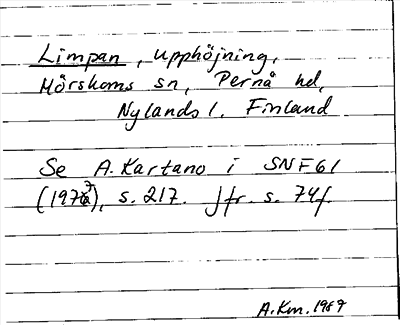 Limpan, upphöjning,
Mörskoms sn, Pernå hd,
Nylands l. Finland
Se A. Kartano i SNF 61
(1977), s. 217. Jfr. s. 74f.
A.Km. 1987